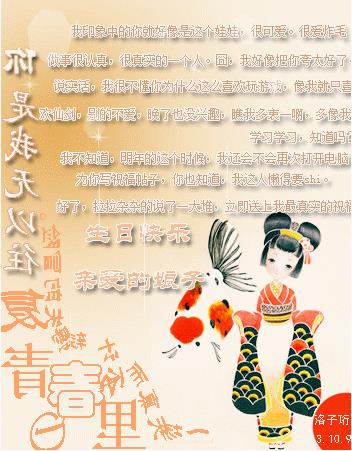 我印象中的你就好像是这个娃娃，很可爱。很爱炸毛
做事很认真，很真实的一个人。囧，我好像把你夸太好了
说实话，我很不懂你为什么这么喜欢玩游戏，像我就只喜
欢仙剑，别的不爱，晚了也没兴趣，瞧我多表一啊，多像我
学习学习，知道吗
我不知道，明年的这个时候，我还会不会再次打开电脑
为你写祝福帖子，你也知道，我这人懒得要shi。
好了，拉拉杂杂的说了一大堆，立即送上我最真实的祝福
生日快乐
亲爱的娘子
你是我无以往
复
青春里
洛子珩
3.10.9